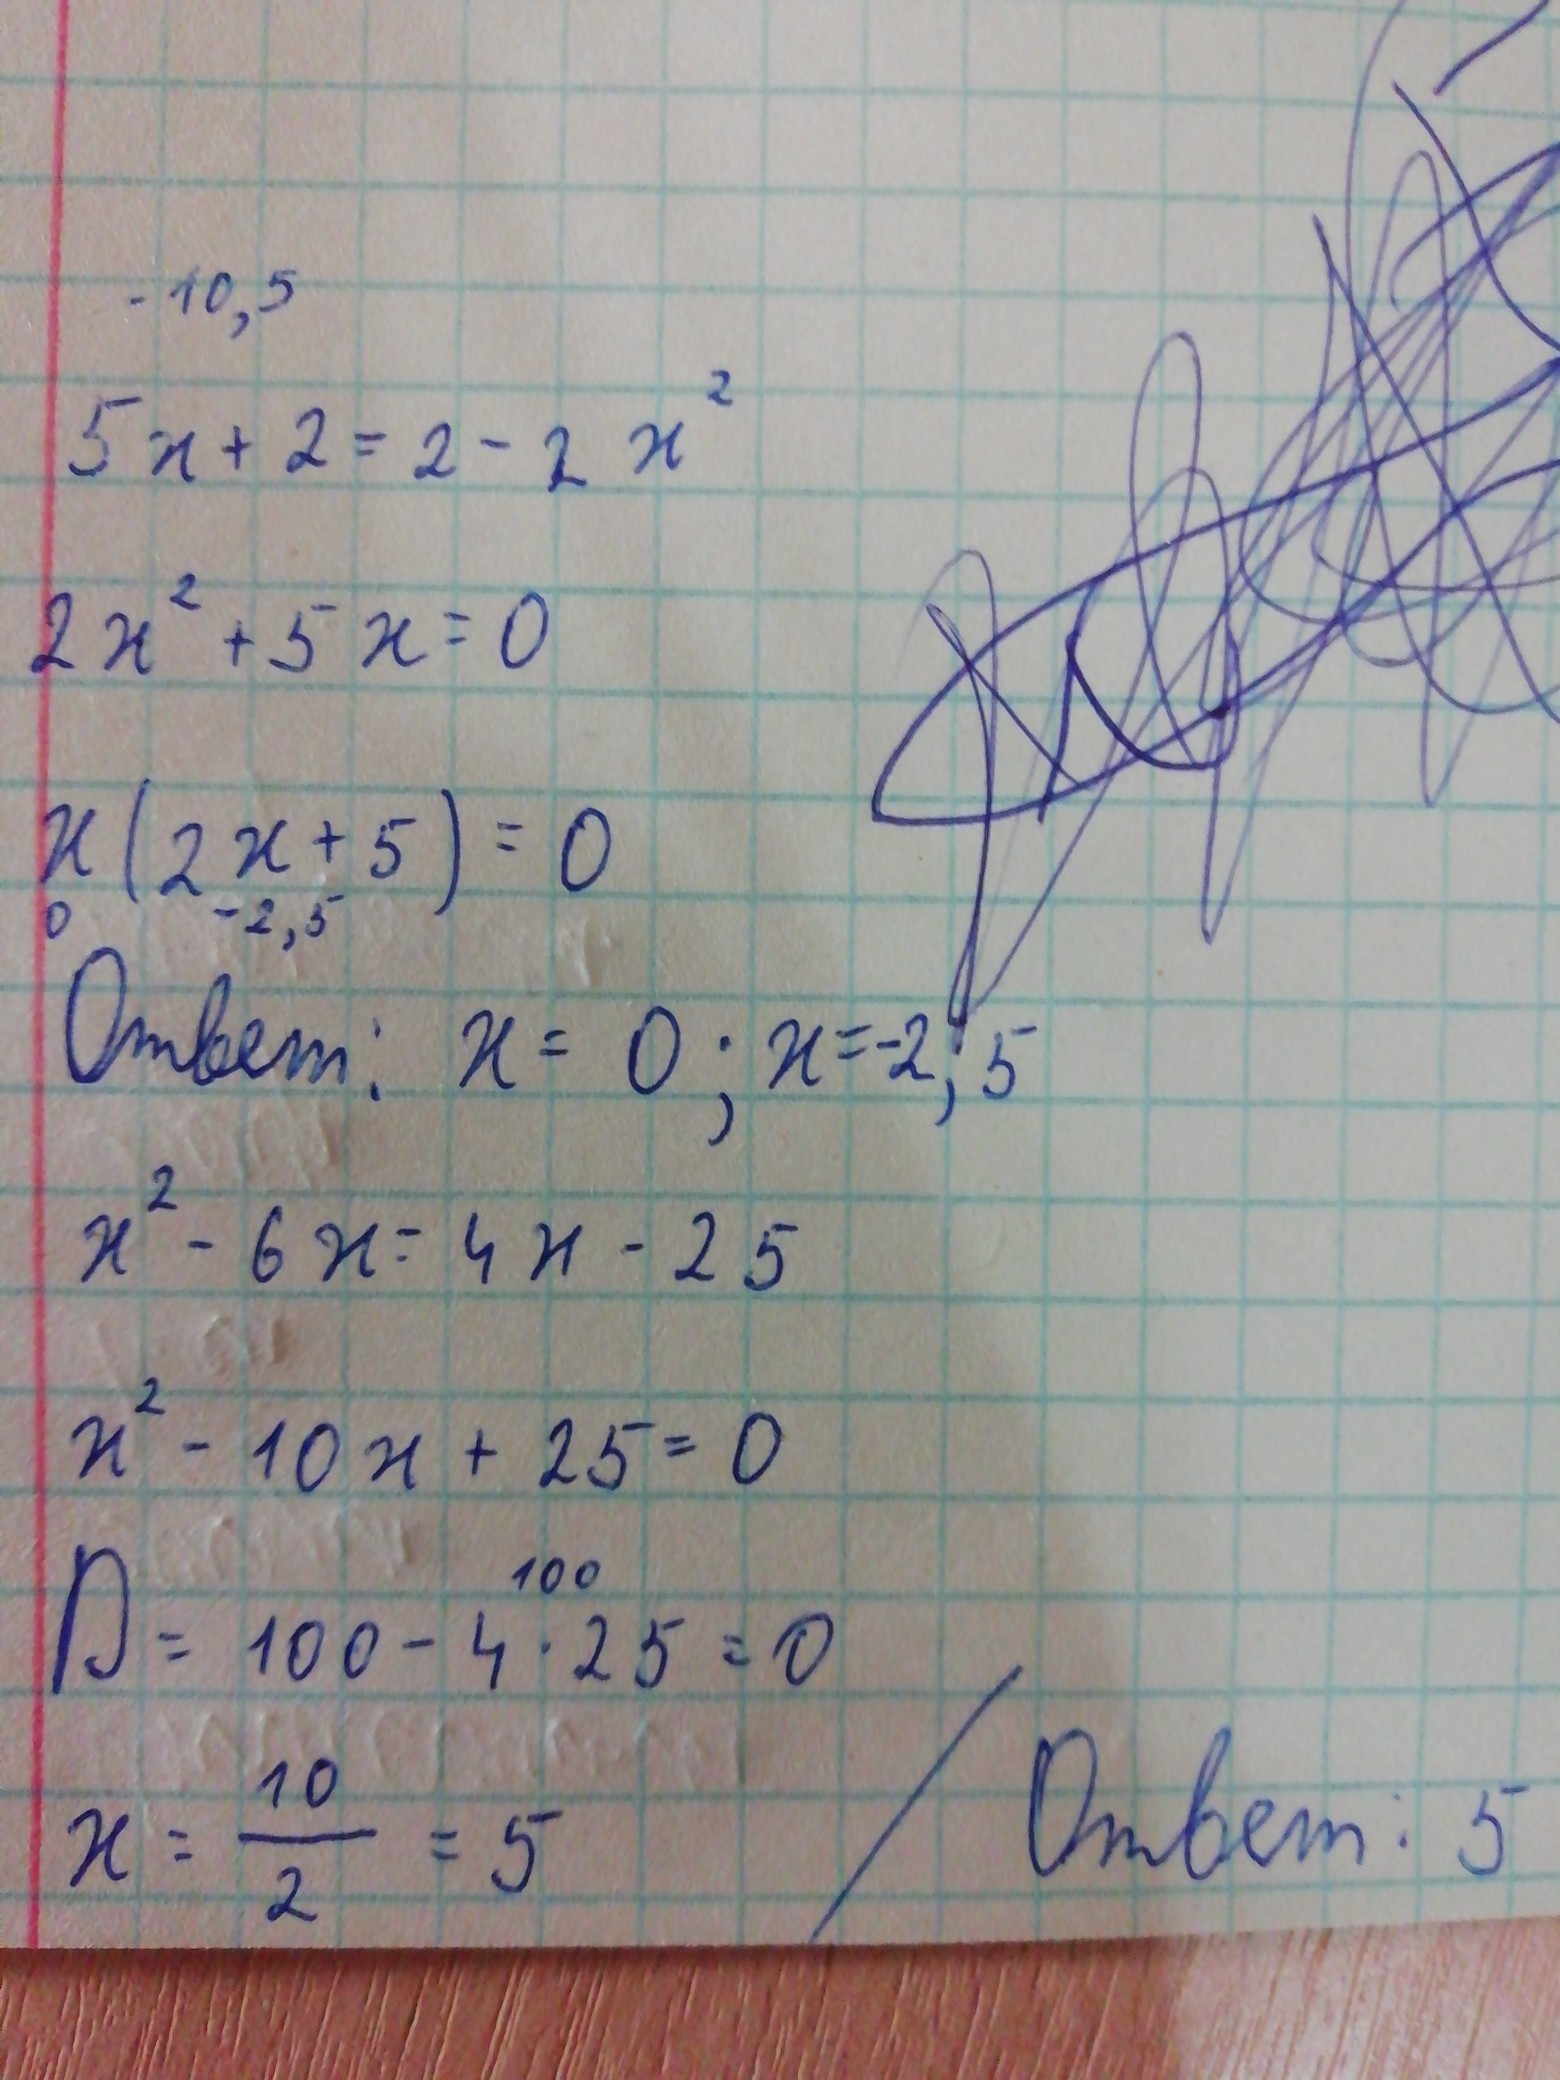 -10,5
5x+2=2-2x²
2x²+5x=0
x(2x+5)=0
0 -2,5
Ответ: x=0; x=-2,5
x²-6x=4x-25
x²-10x+25=0
100
D=100-4·25=0
x=10/2=5 / Ответ: 5